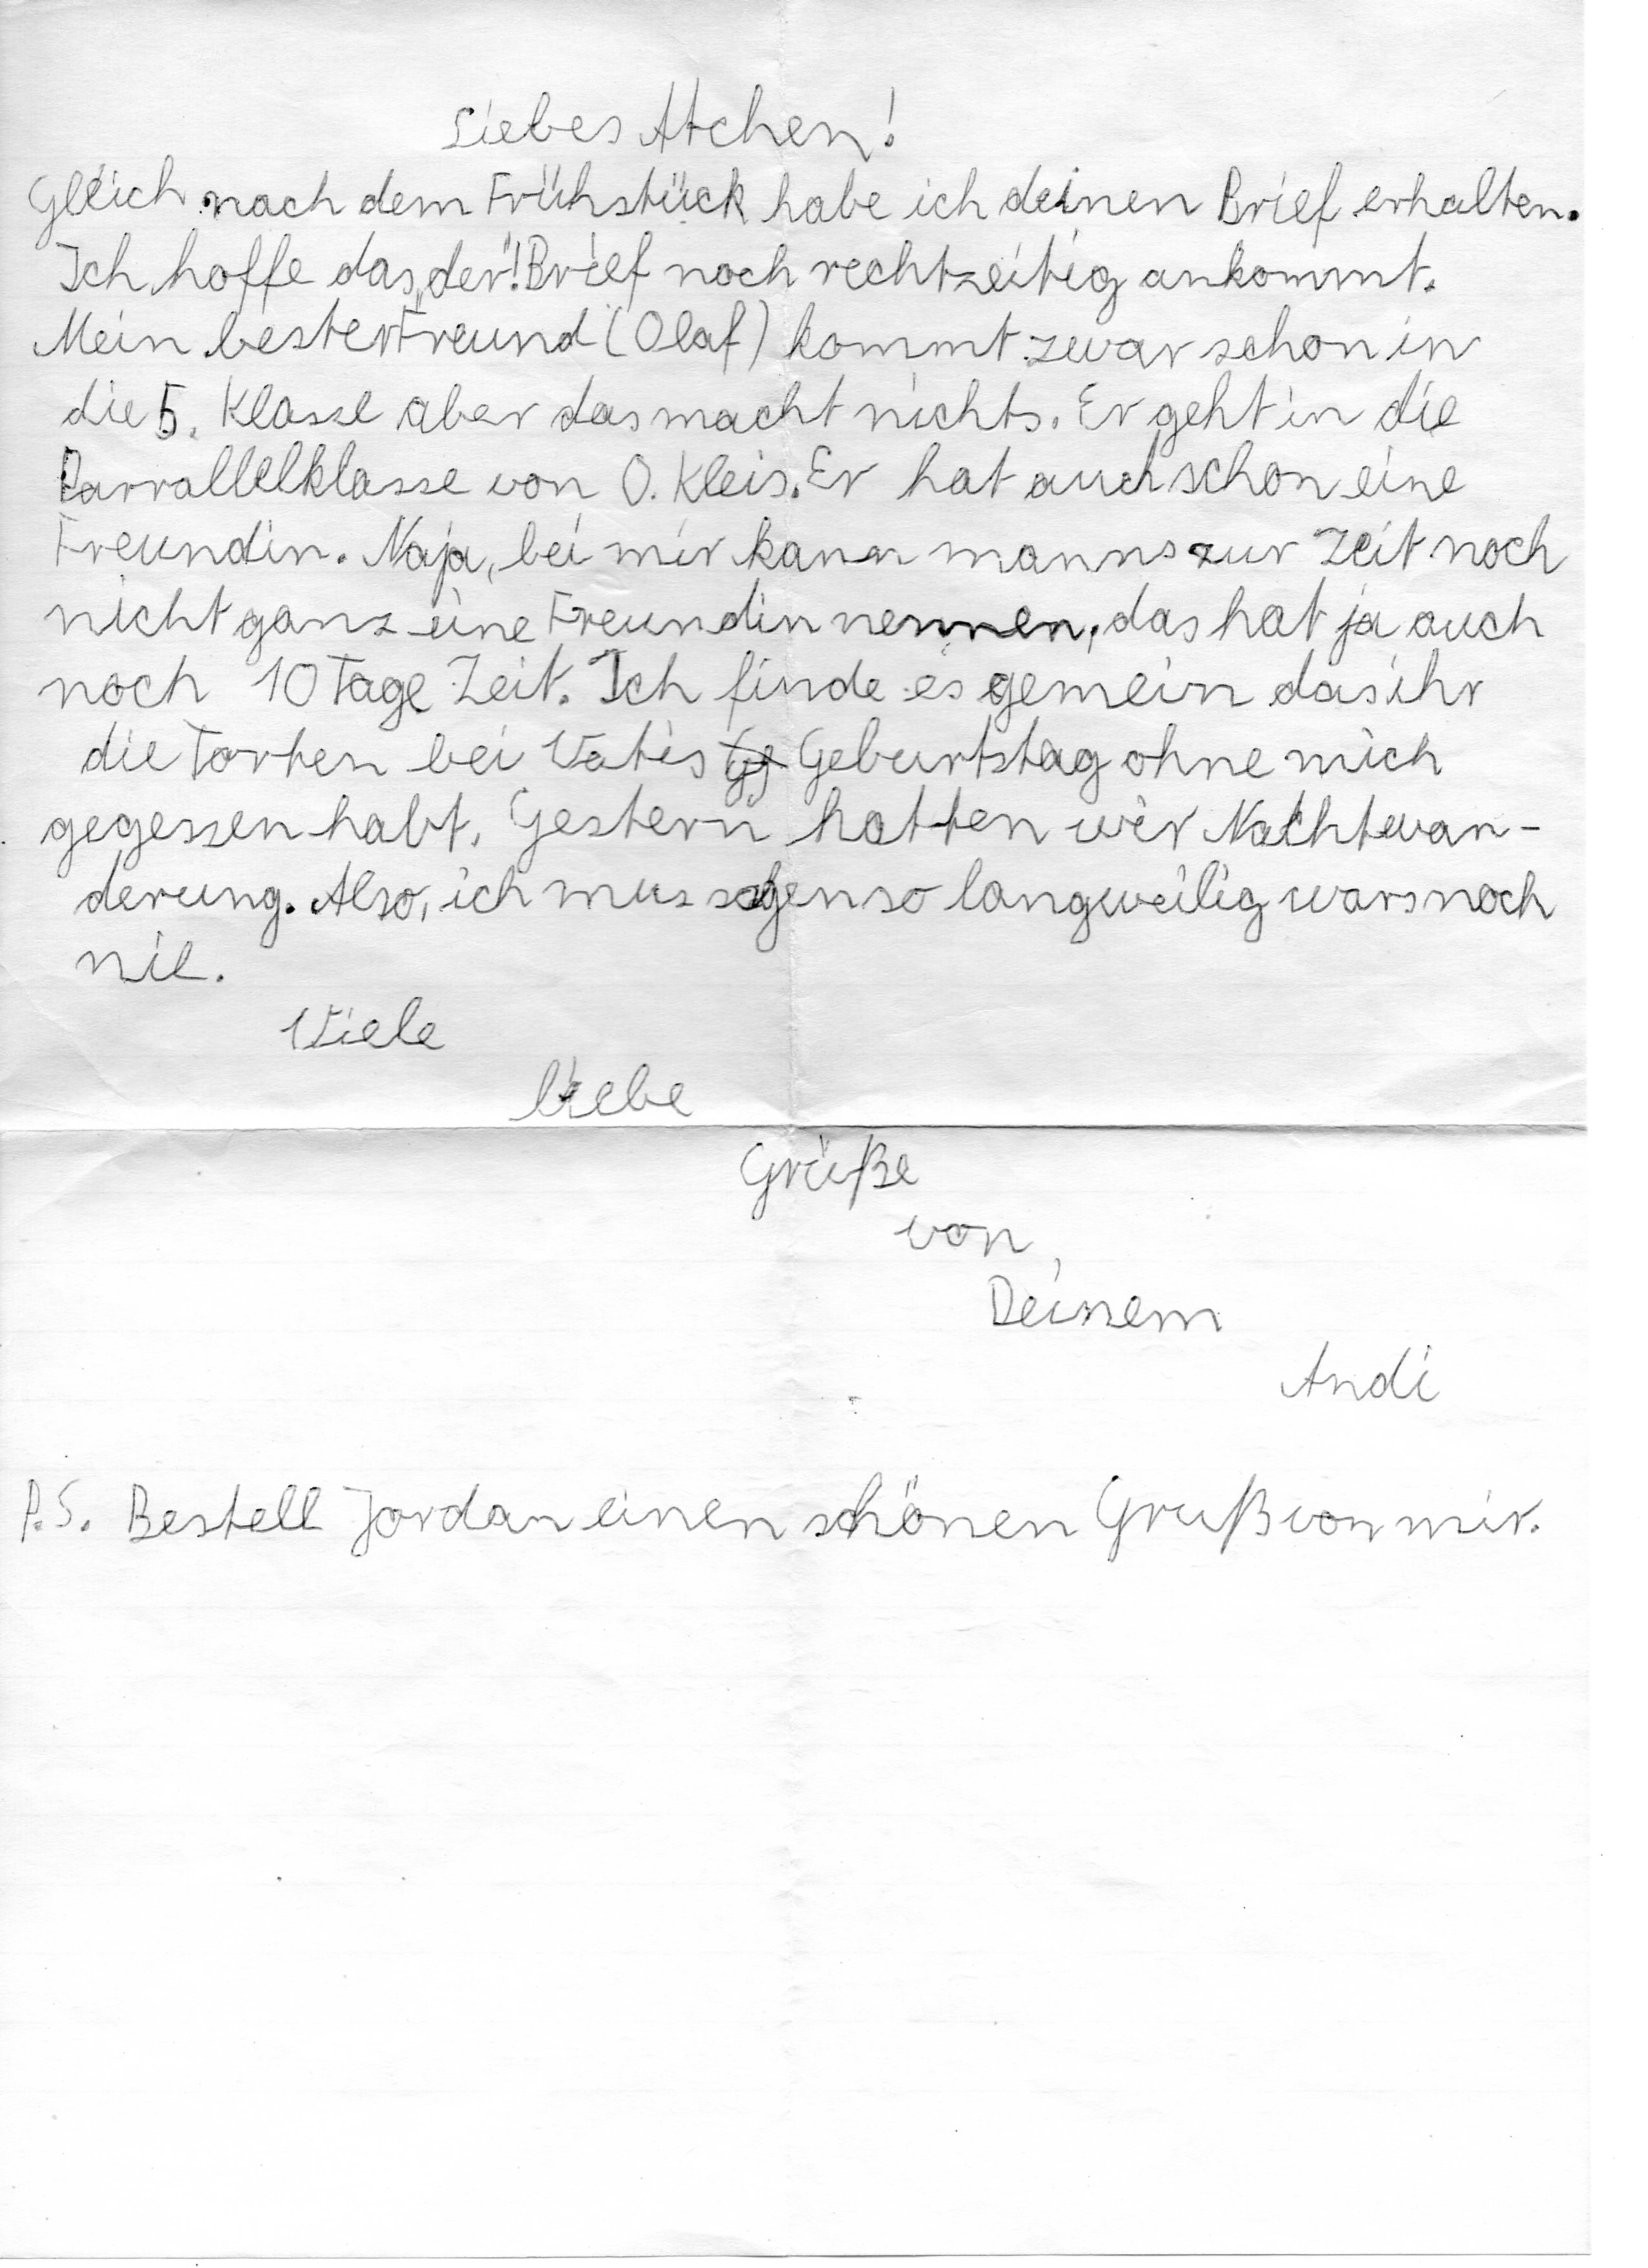 Liebes Atchen!
Gleich nach dem Frühstück habe ich deinen Brief erhalten.
Ich hoffe das „der“! Brief noch rechtzeitig ankommt.
Mein bester Freund (Olaf) kommt zwar schon in
die 5. Klasse aber das macht nichts. Er geht in die
Parrallelklasse von O. Kleis. Er hat auch schon eine
Freundin. Naja, bei mir kann manns zur Zeit noch
nicht ganz eine Freundin nennen, das hat ja auch
noch 10 Tage Zeit. Ich finde es gemein das ihr
die Torten bei Vatis Geburtstag ohne mich
gegessen habt. Gestern hatten wir Nachtwan-
derung. Also, ich muss sagen so langweilig wars noch
nie.
Viele
liebe
Grüße
von
Deinem
Andi
P.S. Bestell Jordan einen schönen Gruß von mir.